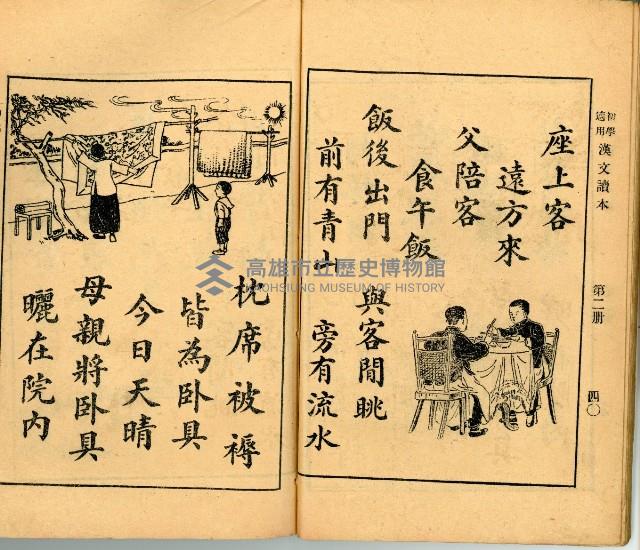 初學適用漢文讀本
第二册
四〇
座上客
遠方來
父陪客
食午飯
飯後出門
與客閒眺
前有青山
旁有流水
枕席被褥
皆為卧具
今日天晴
母親將卧具
曬在院內
高雄市立歷史博物館
KAOHSIUNG MUSEUM OF HISTORY